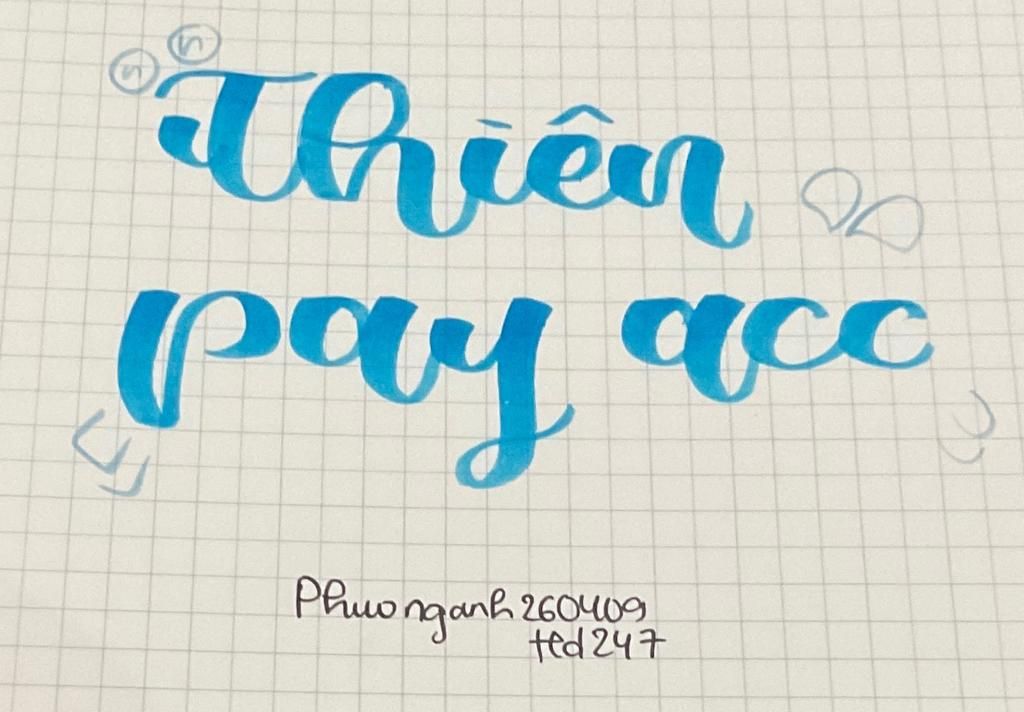 Thiên
pay acc
Phuonganh260409
ted247